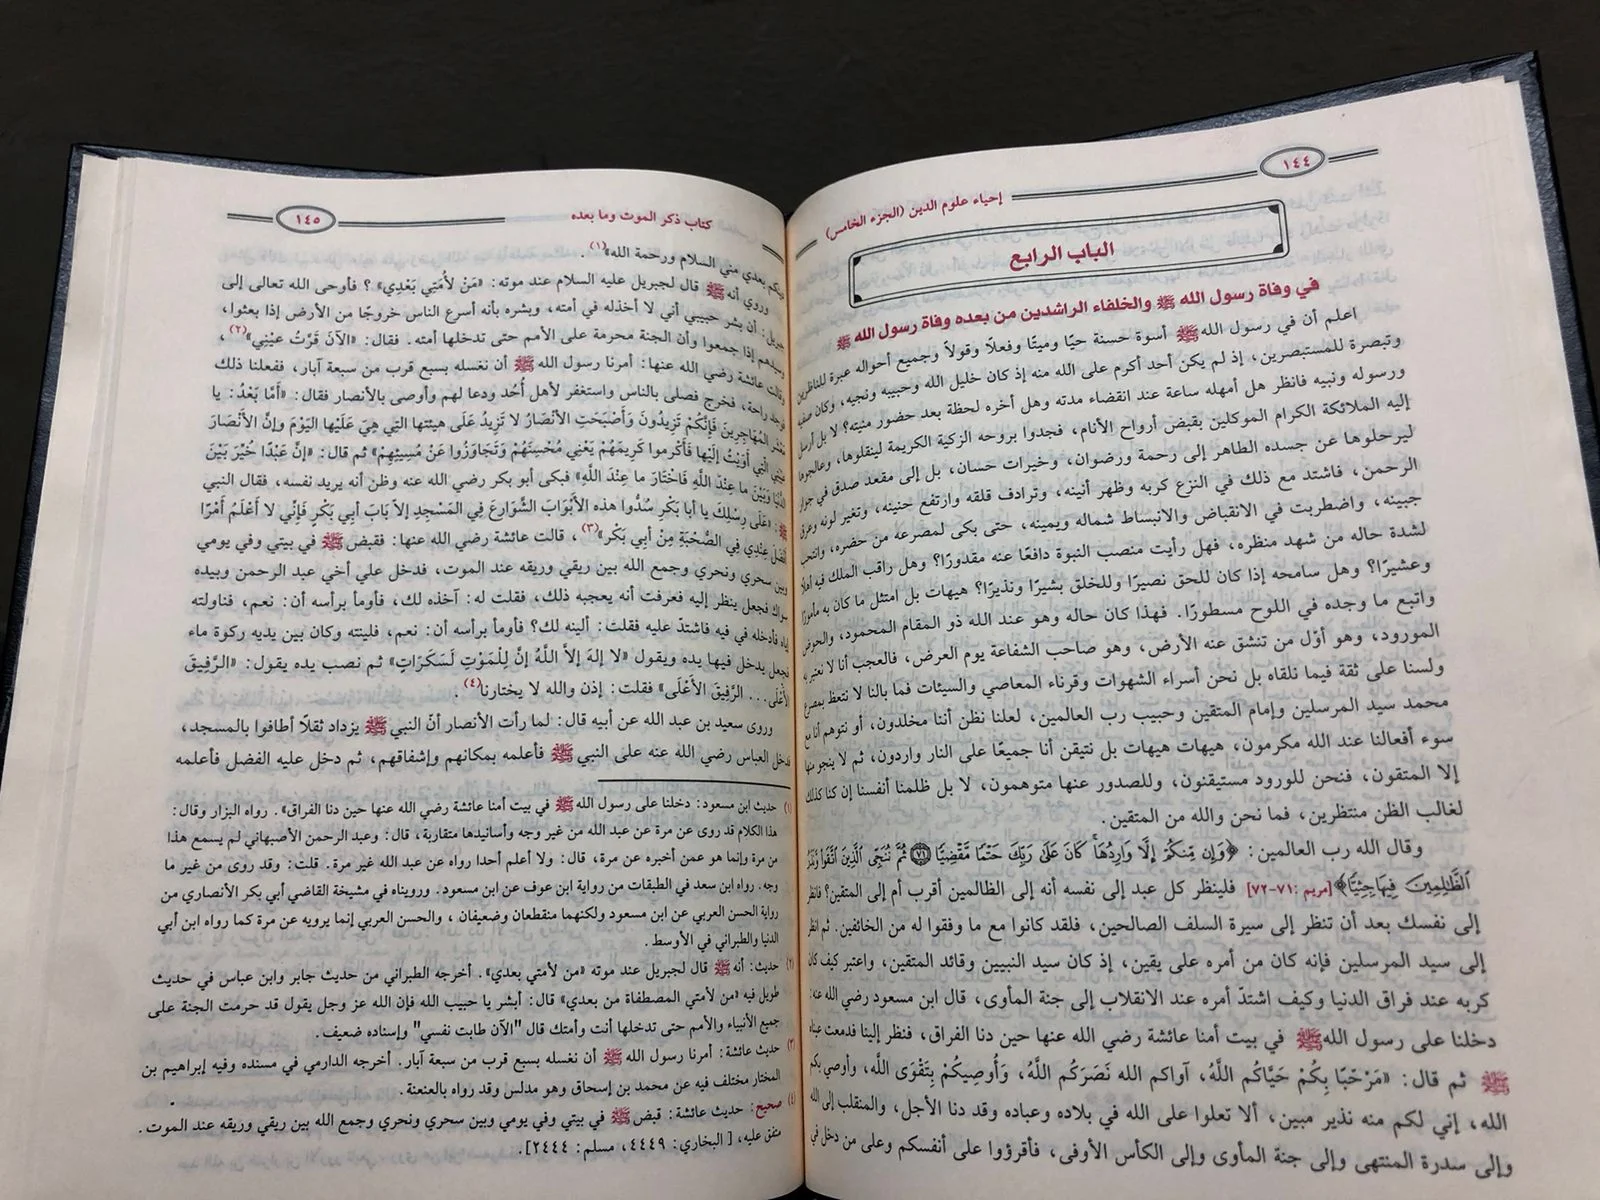 ١٤٤
إحياء علوم الدين (الجزء الخامس)
الباب الرابع
في وفاة رسول الله ﷺ والخلفاء الراشدين من بعده وفاة رسول الله ﷺ
اعلم أن في رسول الله ﷺ أسوة حسنة حيًا وميتًا وفعلاً وقولاً وجميع أحواله عبرة للناظرين
وتبصرة للمستبصرين، إذ لم يكن أحد أكرم على الله منه إذ كان خليل الله وحبيبه ونجيه، وكان صفيه
ورسوله ونبيه فانظر هل أمهله ساعة عند انقضاء مدته وهل أخره لحظة بعد حضور منيته؟ لا بل أرسل
إليه الملائكة الكرام الموكلين بقبض أرواح الأنام، فجدوا بروحه الزكية الكريمة لينقلوها، وعالجوها
ليرحلوها عن جسده الطاهر إلى رحمة ورضوان، وخيرات حسان، بل إلى مقعد صدق في جوار
الرحمن، فاشتد مع ذلك في النزع كربه وظهر أنينه، وترادف قلقه وارتفع حنينه، وتغير لونه وعرق
جبينه، واضطربت في الانقباض والانبساط شماله ويمينه، حتى بكى لمصرعه من حضره، وانتحب
لشدة حاله من شهد منظره، فهل رأيت منصب النبوة دافعًا عنه مقدورًا؟ وهل راقب الملك فيه أهلا
وعشيرًا؟ وهل سامحه إذا كان للحق نصيرًا وللخلق بشيرًا ونذيرًا؟ هيهات بل امتثل ما كان به مأمورًا
واتبع ما وجده في اللوح مسطورًا. فهذا كان حاله وهو عند الله ذو المقام المحمود، والحوض
المورود، وهو أوّل من تنشق عنه الأرض، وهو صاحب الشفاعة يوم العرض، فالعجب أنا لا نعتبر به
ولسنا على ثقة فيما نلقاه بل نحن أسراء الشهوات وقرناء المعاصي والسيئات فما بالنا لا نتعظ بمصرع
محمد سيد المرسلين وإمام المتقين وحبيب رب العالمين، لعلنا نظن أننا مخلدون، أو نتوهم أنا مع
سوء أفعالنا عند الله مكرمون، هيهات هيهات بل نتيقن أنا جميعًا على النار واردون، ثم لا ينجو منها
إلا المتقون، فنحن للورود مستيقنون، وللصدور عنها متوهمون، لا بل ظلمنا أنفسنا إن كنا كذلك
لغالب الظن منتظرين، فما نحن والله من المتقين.
وقال الله رب العالمين: ﴿وَإِن مِّنكُمْ إِلَّا وَارِدُهَا كَانَ عَلَىٰ رَبِّكَ حَتْمًا مَّقْضِيًّا ﴿٧١﴾ ثُمَّ نُنَجِّي الَّذِينَ اتَّقَوا وَّنَذَرُ
الظَّالِمِينَ فِيهَا جِثِيًّا﴾ [مريم :٧١-٧٢] فلينظر كل عبد إلى نفسه أنه إلى الظالمين أقرب أم إلى المتقين؟ فانظر
إلى نفسك بعد أن تنظر إلى سيرة السلف الصالحين، فلقد كانوا مع ما وفقوا له من الخائفين. ثم انظر
إلى سيد المرسلين فإنه كان من أمره على يقين، إذ كان سيد النبيين وقائد المتقين، واعتبر كيف كان
كربه عند فراق الدنيا وكيف اشتدّ أمره عند الانقلاب إلى جنة المأوى، قال ابن مسعود رضي الله عنه:
دخلنا على رسول الله ﷺ في بيت أمنا عائشة رضي الله عنها حين دنا الفراق، فنظر إلينا فدمعت عيناه
ﷺ ثم قال: «مَرْحَبًا بِكُمْ حَيَّاكُم اللَّهُ، آواكم الله نَصَرَكُم اللَّهُ، وَأُوصِيكُمْ بِتَقْوَى اللَّه، وأوصي بكم
الله، إني لكم منه نذير مبين، ألا تعلوا على الله في بلاده وعباده وقد دنا الأجل، والمنقلب إلى الله
وإلى سدرة المنتهى وإلى جنة المأوى وإلى الكأس الأوفى، فأقرؤوا على أنفسكم وعلى من دخل في
كتاب ذكر الموت وما بعده
١٤٥
دينكم بعدي مني السلام ورحمة الله»(١).
وروي أنه ﷺ قال لجبريل عليه السلام عند موته: «مَنْ لأُمَّتِي بَعْدِي» ؟ فأوحى الله تعالى إلى
جبريل: أن بشر حبيبي أني لا أخذله في أمته، وبشره بأنه أسرع الناس خروجًا من الأرض إذا بعثوا،
وسيدهم إذا جمعوا وأن الجنة محرمة على الأمم حتى تدخلها أمته. فقال: «الآنَ قَرَّتْ عَيْنِي»(٢)،
وقالت عائشة رضي الله عنها: أمرنا رسول الله ﷺ أن نغسله بسبع قرب من سبعة آبار، ففعلنا ذلك
فوجد راحة، فخرج فصلى بالناس واستغفر لأهل أُحُد ودعا لهم وأوصى بالأنصار فقال: «أَمَّا بَعْدُ: يا
مَعْشَرَ المُهَاجِرِينَ فَإِنَّكُمْ تَزِيدُونَ وَأَصْبَحَتِ الأَنْصَارُ لا تَزِيدُ عَلَى هيئتها التِي هِيَ عَلَيْها اليَوْمَ وإنَّ الأنْصَارَ
عَيْبَتِي الَّتِي أَوَيْتُ إِلَيْها فَأَكْرِموا كَرِيمَهُمْ يَعْنِي مُحْسِنَهُمْ وَتَجَاوَزُوا عَنْ مُسِيئِهِمْ» ثم قال: «إنَّ عَبْدًا خُيِّرَ بَيْنَ
الدُّنْيَا وَبَيْنَ ما عِنْدَ اللَّهِ فَاخْتَارَ ما عِنْدَ اللَّهِ» فبكى أبو بكر رضي الله عنه وظن أنه يريد نفسه، فقال النبي
ﷺ: «عَلَى رِسْلِكَ يا أبا بَكْرٍ سُدُّوا هذه الأَبْوَابَ الشَّوَارِعَ فِي المَسْجِدِ إلاّ بَابَ أبِي بَكْرٍ فَإِنِّي لا أَعْلَمُ أمْرًا
أَفْضَلَ عِنْدِي فِي الصُّحْبَةِ مِنْ أبِي بَكْر»(٣)، قالت عائشة رضي الله عنها: فقبض ﷺ في بيتي وفي يومي
وبين سحري ونحري وجمع الله بين ريقي وريقه عند الموت، فدخل علي أخي عبد الرحمن وبيده
سواك فجعل ينظر إليه فعرفت أنه يعجبه ذلك، فقلت له: آخذه لك، فأومأ برأسه أن: نعم، فناولته
إياه فأدخله في فيه فاشتدّ عليه فقلت: ألينه لك؟ فأومأ برأسه أن: نعم، فلينته وكان بين يديه ركوة ماء
فجعل يدخل فيها يده ويقول «لا إلهَ إلاَّ اللَّهُ إنَّ لِلْمَوْتِ لَسَكَرَاتٍ» ثم نصب يده يقول: «الرَّفِيقَ
الأعْلَى... الرَّفِيقَ الأَعْلَى» فقلت: إذن والله لا يختارنا(٤).
وروى سعيد بن عبد الله عن أبيه قال: لما رأت الأنصار أنّ النبي ﷺ يزداد ثقلاً أطافوا بالمسجد،
فدخل العباس رضي الله عنه على النبي ﷺ فأعلمه بمكانهم وإشفاقهم، ثم دخل عليه الفضل فأعلمه
(١) حديث ابن مسعود: دخلنا على رسول الله ﷺ في بيت أمنا عائشة رضي الله عنها حين دنا الفراق». رواه البزار وقال:
هذا الكلام قد روى عن مرة عن عبد الله من غير وجه وأسانيدها متقاربة، قال: وعبد الرحمن الأصبهاني لم يسمع هذا
من مرة وإنما هو عمن أخبره عن مرة، قال: ولا أعلم أحدا رواه عن عبد الله غير مرة. قلت: وقد روى من غير ما
وجه. رواه ابن سعد في الطبقات من رواية ابن عوف عن ابن مسعود. ورويناه في مشيخة القاضي أبي بكر الأنصاري من
رواية الحسن العربي عن ابن مسعود ولكنهما منقطعان وضعيفان ، والحسن العربي إنما يرويه عن مرة كما رواه ابن أبي
الدنيا والطبراني في الأوسط.
(٢) حديث: أنه ﷺ قال لجبريل عند موته «من لأمتي بعدي». أخرجه الطبراني من حديث جابر وابن عباس في حديث
طويل فيه «من لأمتي المصطفاة من بعدي» قال: أبشر يا حبيب الله فإن الله عز وجل يقول قد حرمت الجنة على
جميع الأنبياء والأمم حتى تدخلها أنت وأمتك قال "الآن طابت نفسي" وإسناده ضعيف.
(٣) حديث عائشة: أمرنا رسول الله ﷺ أن نغسله بسبع قرب من سبعة آبار. أخرجه الدارمي في مسنده وفيه إبراهيم بن
المختار مختلف فيه عن محمد بن إسحاق وهو مدلس وقد رواه بالعنعنة.
(٤) صحيح: حديث عائشة: قبض ﷺ في بيتي وفي يومي وبين سحري ونحري وجمع الله بين ريقي وريقه عند الموت.
متفق عليه، [البخاري: ٤٤٤٩، مسلم: ٢٤٤٤].